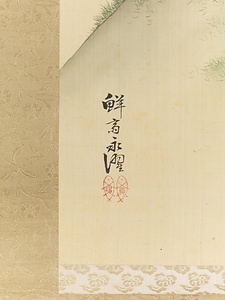 鮮斎永濯